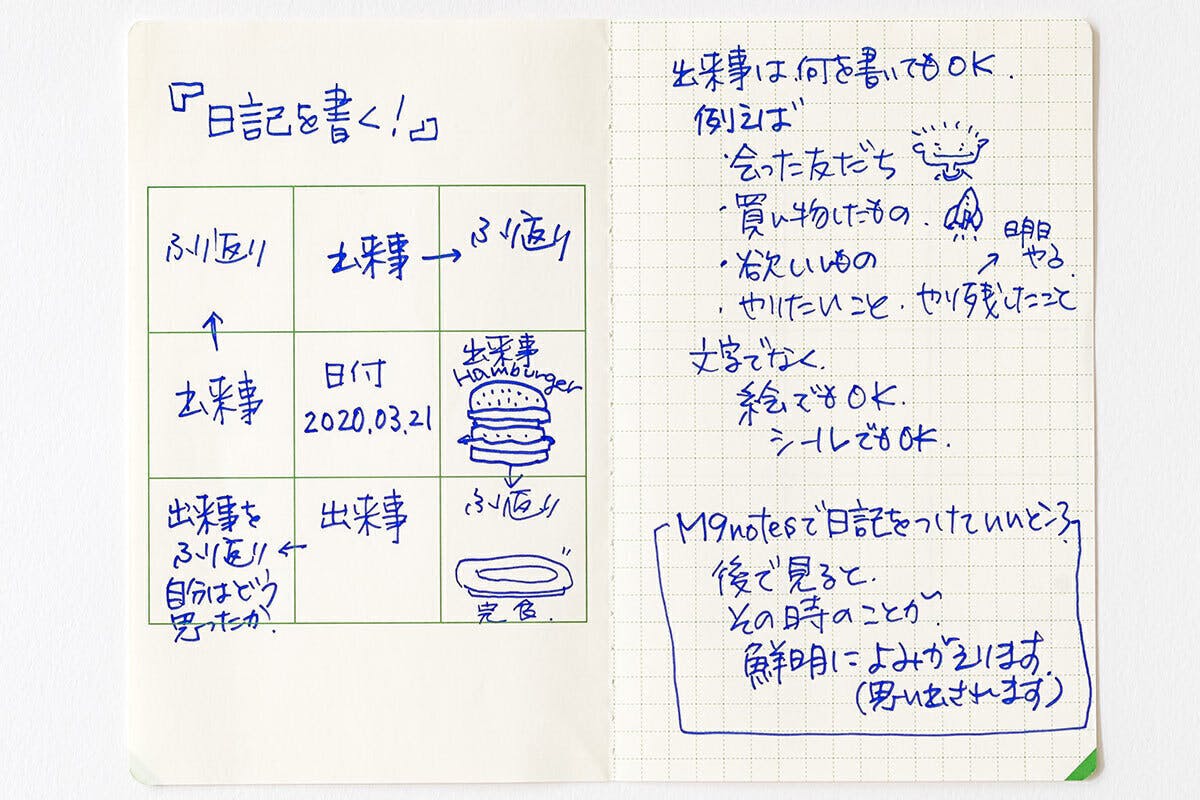 『日記を書く!』
ふり返り
出来事→
ふり返り
↑
出来事
日付
2020.03.21
出来事
Hamburger
↓
出来事を
ふり返り←
自分はどう
思ったか.
出来事
ふり返り
完食.
出来事は何を書いてもOK.
例えば
・会った友だち
・買い物したもの.
・欲しいもの
・やりたいこと・やり残したこと
↗明日
やる.
文字でなく.
絵でもOK.
シールでもOK.
M9notesで日記をつけていいところ?
後で見ると.
その時のことが.
鮮明によみがえります.
(思い出されます)